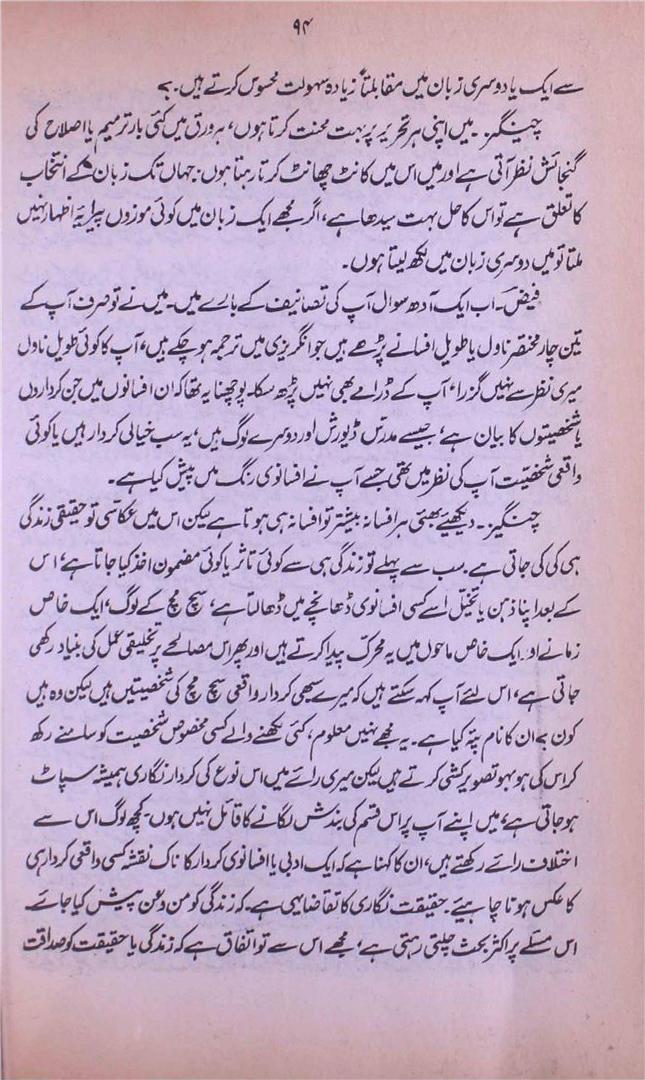 ۹۴
سے ایک یا دوسری زبان میں مقابلتاً زیادہ سہولت محسوس کرتے ہیں۔؟
چنگیز۔ میں اپنی ہر تحریر پر بہت محنت کرتا ہوں، ہر ورق میں کئی بار ترمیم یا اصلاح کی
گنجائش نظر آتی ہے اور میں اس میں کانٹ چھانٹ کرتا رہتا ہوں۔ جہاں تک زبان کے انتخاب
کا تعلق ہے تو اس کا حل بہت سیدھا ہے، اگر مجھے ایک زبان میں کوئی موزوں پیرایۂ اظہار نہیں
ملتا تو میں دوسری زبان میں لکھ لیتا ہوں۔
فیض۔ اب ایک آدھ سوال آپ کی تصانیف کے بارے میں۔ میں نے تو صرف آپ کے
تین چار مختصر ناول یا طویل افسانے پڑھے ہیں جو انگریزی میں ترجمہ ہو چکے ہیں، آپ کا کوئی طویل ناول
میری نظر سے نہیں گزرا، آپ کے ڈرامے بھی نہیں پڑھ سکا۔ پوچھنا یہ تھا کہ ان افسانوں میں جن کرداروں
یا شخصیتوں کا بیان ہے، جیسے مدرس ڈیوشن اور دوسرے لوگ ہیں، یہ سب خیالی کردار ہیں یا کوئی
واقعی شخصیت آپ کی نظر میں تھی جسے آپ نے افسانوی رنگ میں پیش کیا ہے۔
چنگیز۔ دیکھیے بھئی ہر افسانہ بیشتر تو افسانہ ہی ہوتا ہے لیکن اس میں عکاسی تو حقیقی زندگی
ہی کی کی جاتی ہے۔ سب سے پہلے تو زندگی ہی سے کوئی تاثر یا کوئی مضمون اخذ کیا جاتا ہے، اس
کے بعد اپنا ذہن یا تخیل اسے کسی افسانوی ڈھانچے میں ڈھالتا ہے، سچ مچ کے لوگ، ایک خاص
زمانے اور ایک خاص ماحول میں یہ محرک پیدا کرتے ہیں اور پھر اس مصالحے پر تخلیقی عمل کی بنیاد رکھی
جاتی ہے، اس لئے آپ کہہ سکتے ہیں کہ میرے سبھی کردار واقعی سچ مچ کی شخصیتیں ہیں لیکن وہ ہیں
کون ہے ان کا نام پتہ کیا ہے۔ یہ مجھے نہیں معلوم، کئی لکھنے والے کسی مخصوص شخصیت کو سامنے رکھ
کر اس کی ہوبہو تصویر کشی کرتے ہیں لیکن میری رائے میں اس نوع کی کردار نگاری ہمیشہ سپاٹ
ہو جاتی ہے، میں اپنے آپ پر اس قسم کی بندش لگانے کا قائل نہیں ہوں۔ کچھ لوگ اس سے
اختلاف رائے رکھتے ہیں، ان کا کہنا ہے کہ ایک ادبی یا افسانوی کردار کا ناک نقشہ کسی واقعی کردار ہی
کا عکس ہونا چاہیئے۔ حقیقت نگاری کا تقاضا یہی ہے کہ زندگی کو من و عن پیش کیا جائے۔
اس مسئلے پر اکثر بحث چلتی رہتی ہے، مجھے اس سے تو اتفاق ہے کہ زندگی یا حقیقت کو صداقت